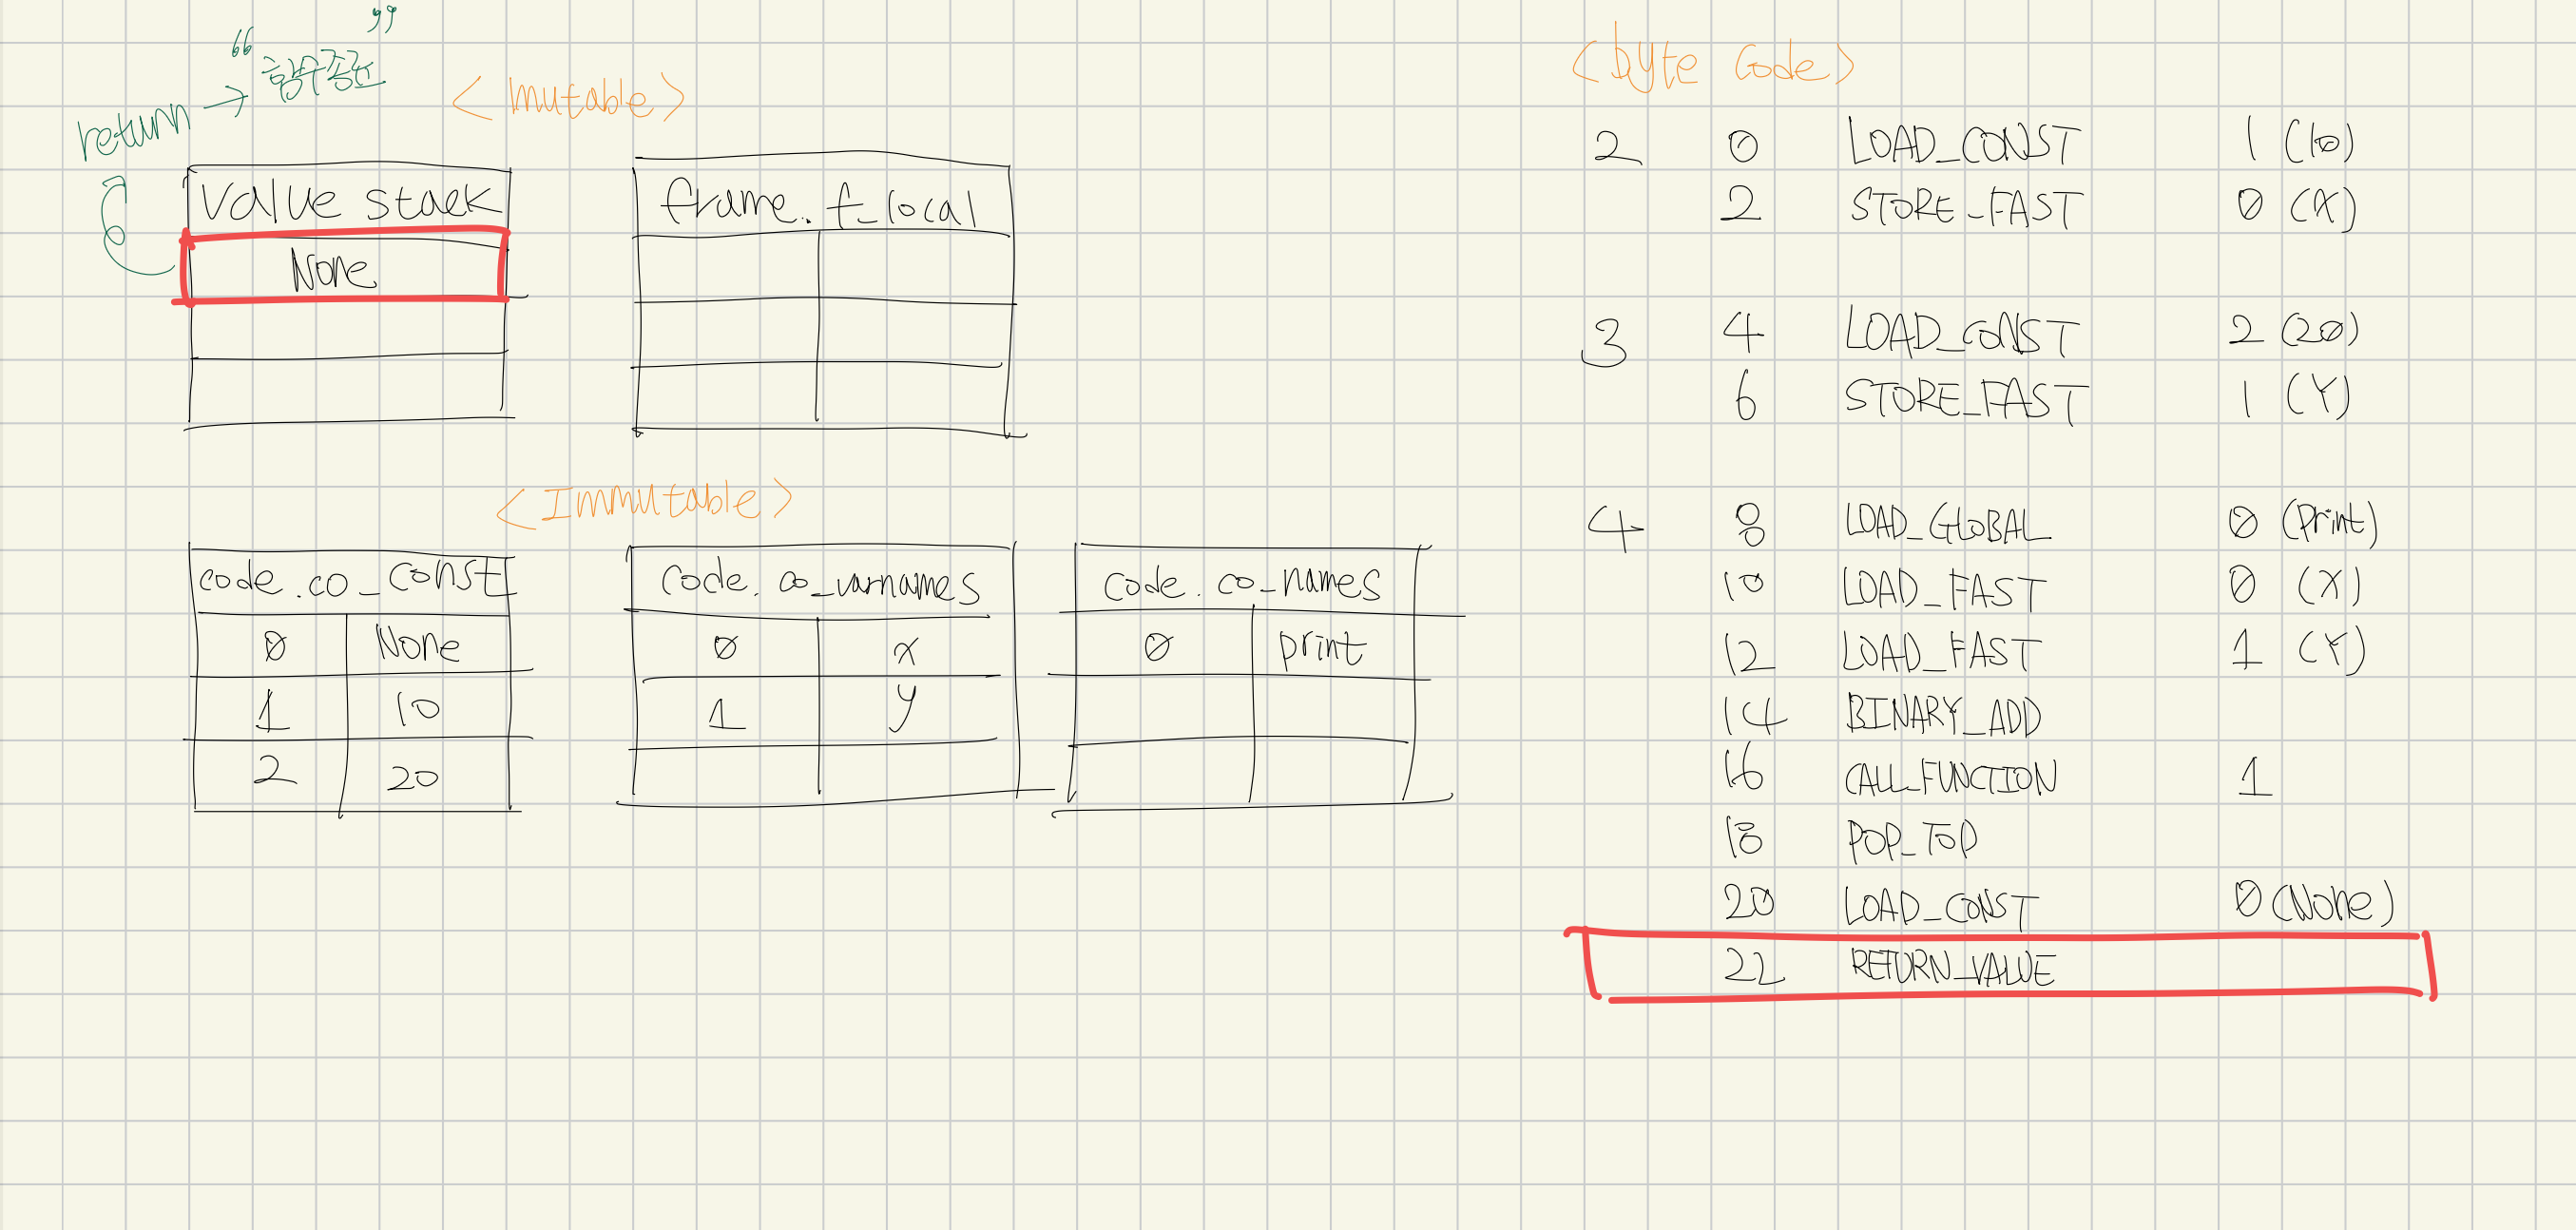 “함수종료”
return →
<mutable>
value stack
None
frame.f_local
<Immutable>
code.co_const
0 None
1 10
2 20
code.co_varnames
0 x
1 y
code.co_names
0 print
<byte code>
2 0 LOAD_CONST 1 (10)
2 STORE_FAST 0 (X)
3 4 LOAD_CONST 2 (20)
6 STORE_FAST 1 (Y)
4 8 LOAD_GLOBAL 0 (print)
10 LOAD_FAST 0 (X)
12 LOAD_FAST 1 (Y)
14 BINARY_ADD
16 CALL_FUNCTION 1
18 POP_TOP
20 LOAD_CONST 0 (None)
22 RETURN_VALUE